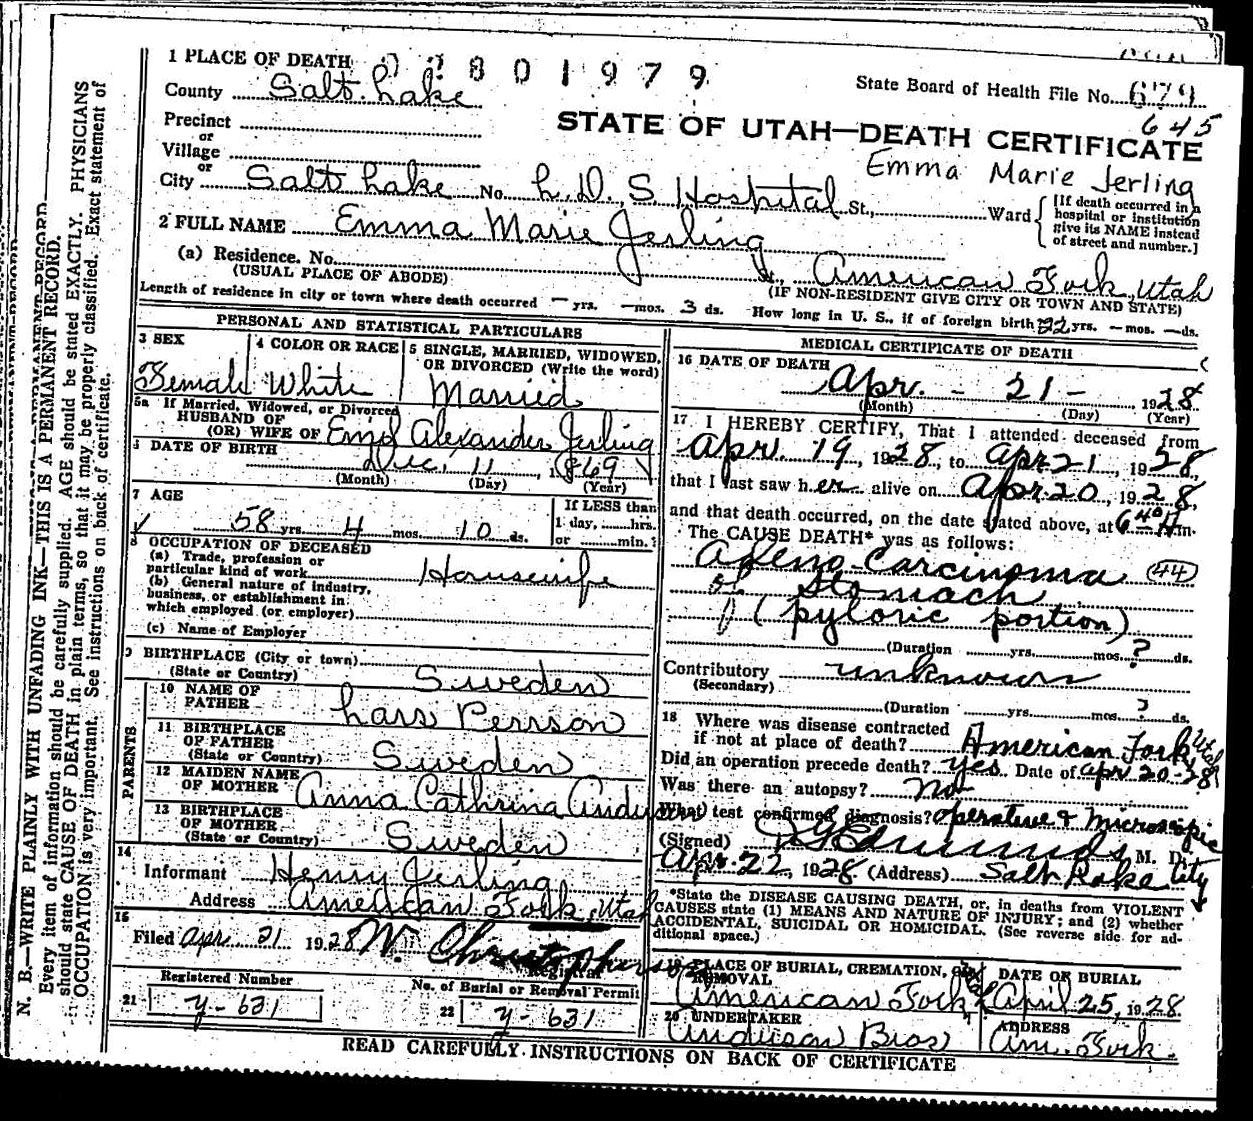 1 PLACE OF DEATH 2801979
State Board of Health File No. 679
County Salt Lake
645
Precinct
STATE OF UTAH—DEATH CERTIFICATE
or
Village
Emma Marie Jerling
or
City Salt Lake No. L. D. S Hospital St., Ward
[If death occurred in a
hospital or institution
give its NAME instead
of street and number.]
2 FULL NAME Emma Marie Jerling
(a) Residence. No. St., American Fork, Utah
(USUAL PLACE OF ABODE)
(IF NON-RESIDENT GIVE CITY OR TOWN AND STATE)
Length of residence in city or town where death occurred — yrs. — mos. 3 ds. How long in U. S., if of foreign birth 22 yrs. — mos. — ds.
N. B.—WRITE PLAINLY WITH UNFADING INK—THIS IS A PERMANENT RECORD.
Every item of information should be carefully supplied. AGE should be stated EXACTLY. PHYSICIANS
should state CAUSE OF DEATH in plain terms, so that it may be properly classified. Exact statement of
OCCUPATION is very important. See instructions on back of certificate.
PERSONAL AND STATISTICAL PARTICULARS
3 SEX
Female
4 COLOR OR RACE
White
5 SINGLE, MARRIED, WIDOWED,
OR DIVORCED (Write the word)
Married
5a If Married, Widowed, or Divorced
HUSBAND OF
(OR) WIFE OF Alexander Jerling
6 DATE OF BIRTH
Dec. 11, 1869
(Month) (Day) (Year)
7 AGE
58 yrs. 4 mos. 10 ds.
If LESS than
1 day, hrs.
or min.?
8 OCCUPATION OF DECEASED
(a) Trade, profession or
particular kind of work Housewife
(b) General nature of industry,
business, or establishment in
which employed (or employer)
(c) Name of Employer
9 BIRTHPLACE (City or town)
(State or Country) Sweden
PARENTS
10 NAME OF
FATHER Lars Person
11 BIRTHPLACE
OF FATHER
(State or Country) Sweden
12 MAIDEN NAME
OF MOTHER Anna Cathrina
13 BIRTHPLACE
OF MOTHER
(State or Country) Sweden
14
Informant Henry Jerling
Address American Fork, Utah
15
Filed Apr 21 1928 W. Christopherson
Registrar
Registered Number
21 y-631
No. of Burial or Removal Permit
22 y-631
MEDICAL CERTIFICATE OF DEATH
16 DATE OF DEATH
Apr. - 21 - 1928
(Month) (Day) (Year)
17 I HEREBY CERTIFY, That I attended deceased from
Apr. 19, 1928, to Apr 21, 1928,
that I last saw her alive on Apr. 20, 1928,
and that death occurred, on the date stated above, at 640 A m.
The CAUSE DEATH* was as follows:
Adeno Carcinoma (44)
of Stomach
(pyloric portion)
(Duration yrs. mos. ? ds.
Contributory unknown
(Secondary)
(Duration yrs. mos. ? ds.
18 Where was disease contracted
if not at place of death? American Fork Utah
Did an operation precede death? yes Date of Apr 20-28
Was there an autopsy? No
What test confirmed diagnosis? Operative & Microscopic
(Signed) Edmunds M. D.
Apr. 22, 1928 (Address) Salt Lake City
*State the DISEASE CAUSING DEATH, or, in deaths from VIOLENT
CAUSES state (1) MEANS AND NATURE OF INJURY; and (2) whether
ACCIDENTAL, SUICIDAL OR HOMICIDAL. (See reverse side for ad-
ditional space.)
19 PLACE OF BURIAL, CREMATION, OR
REMOVAL
American Fork
DATE OF BURIAL
April 25, 1928.
20 UNDERTAKER
Anderson Bros
ADDRESS
Am. Fork.
READ CAREFULLY INSTRUCTIONS ON BACK OF CERTIFICATE